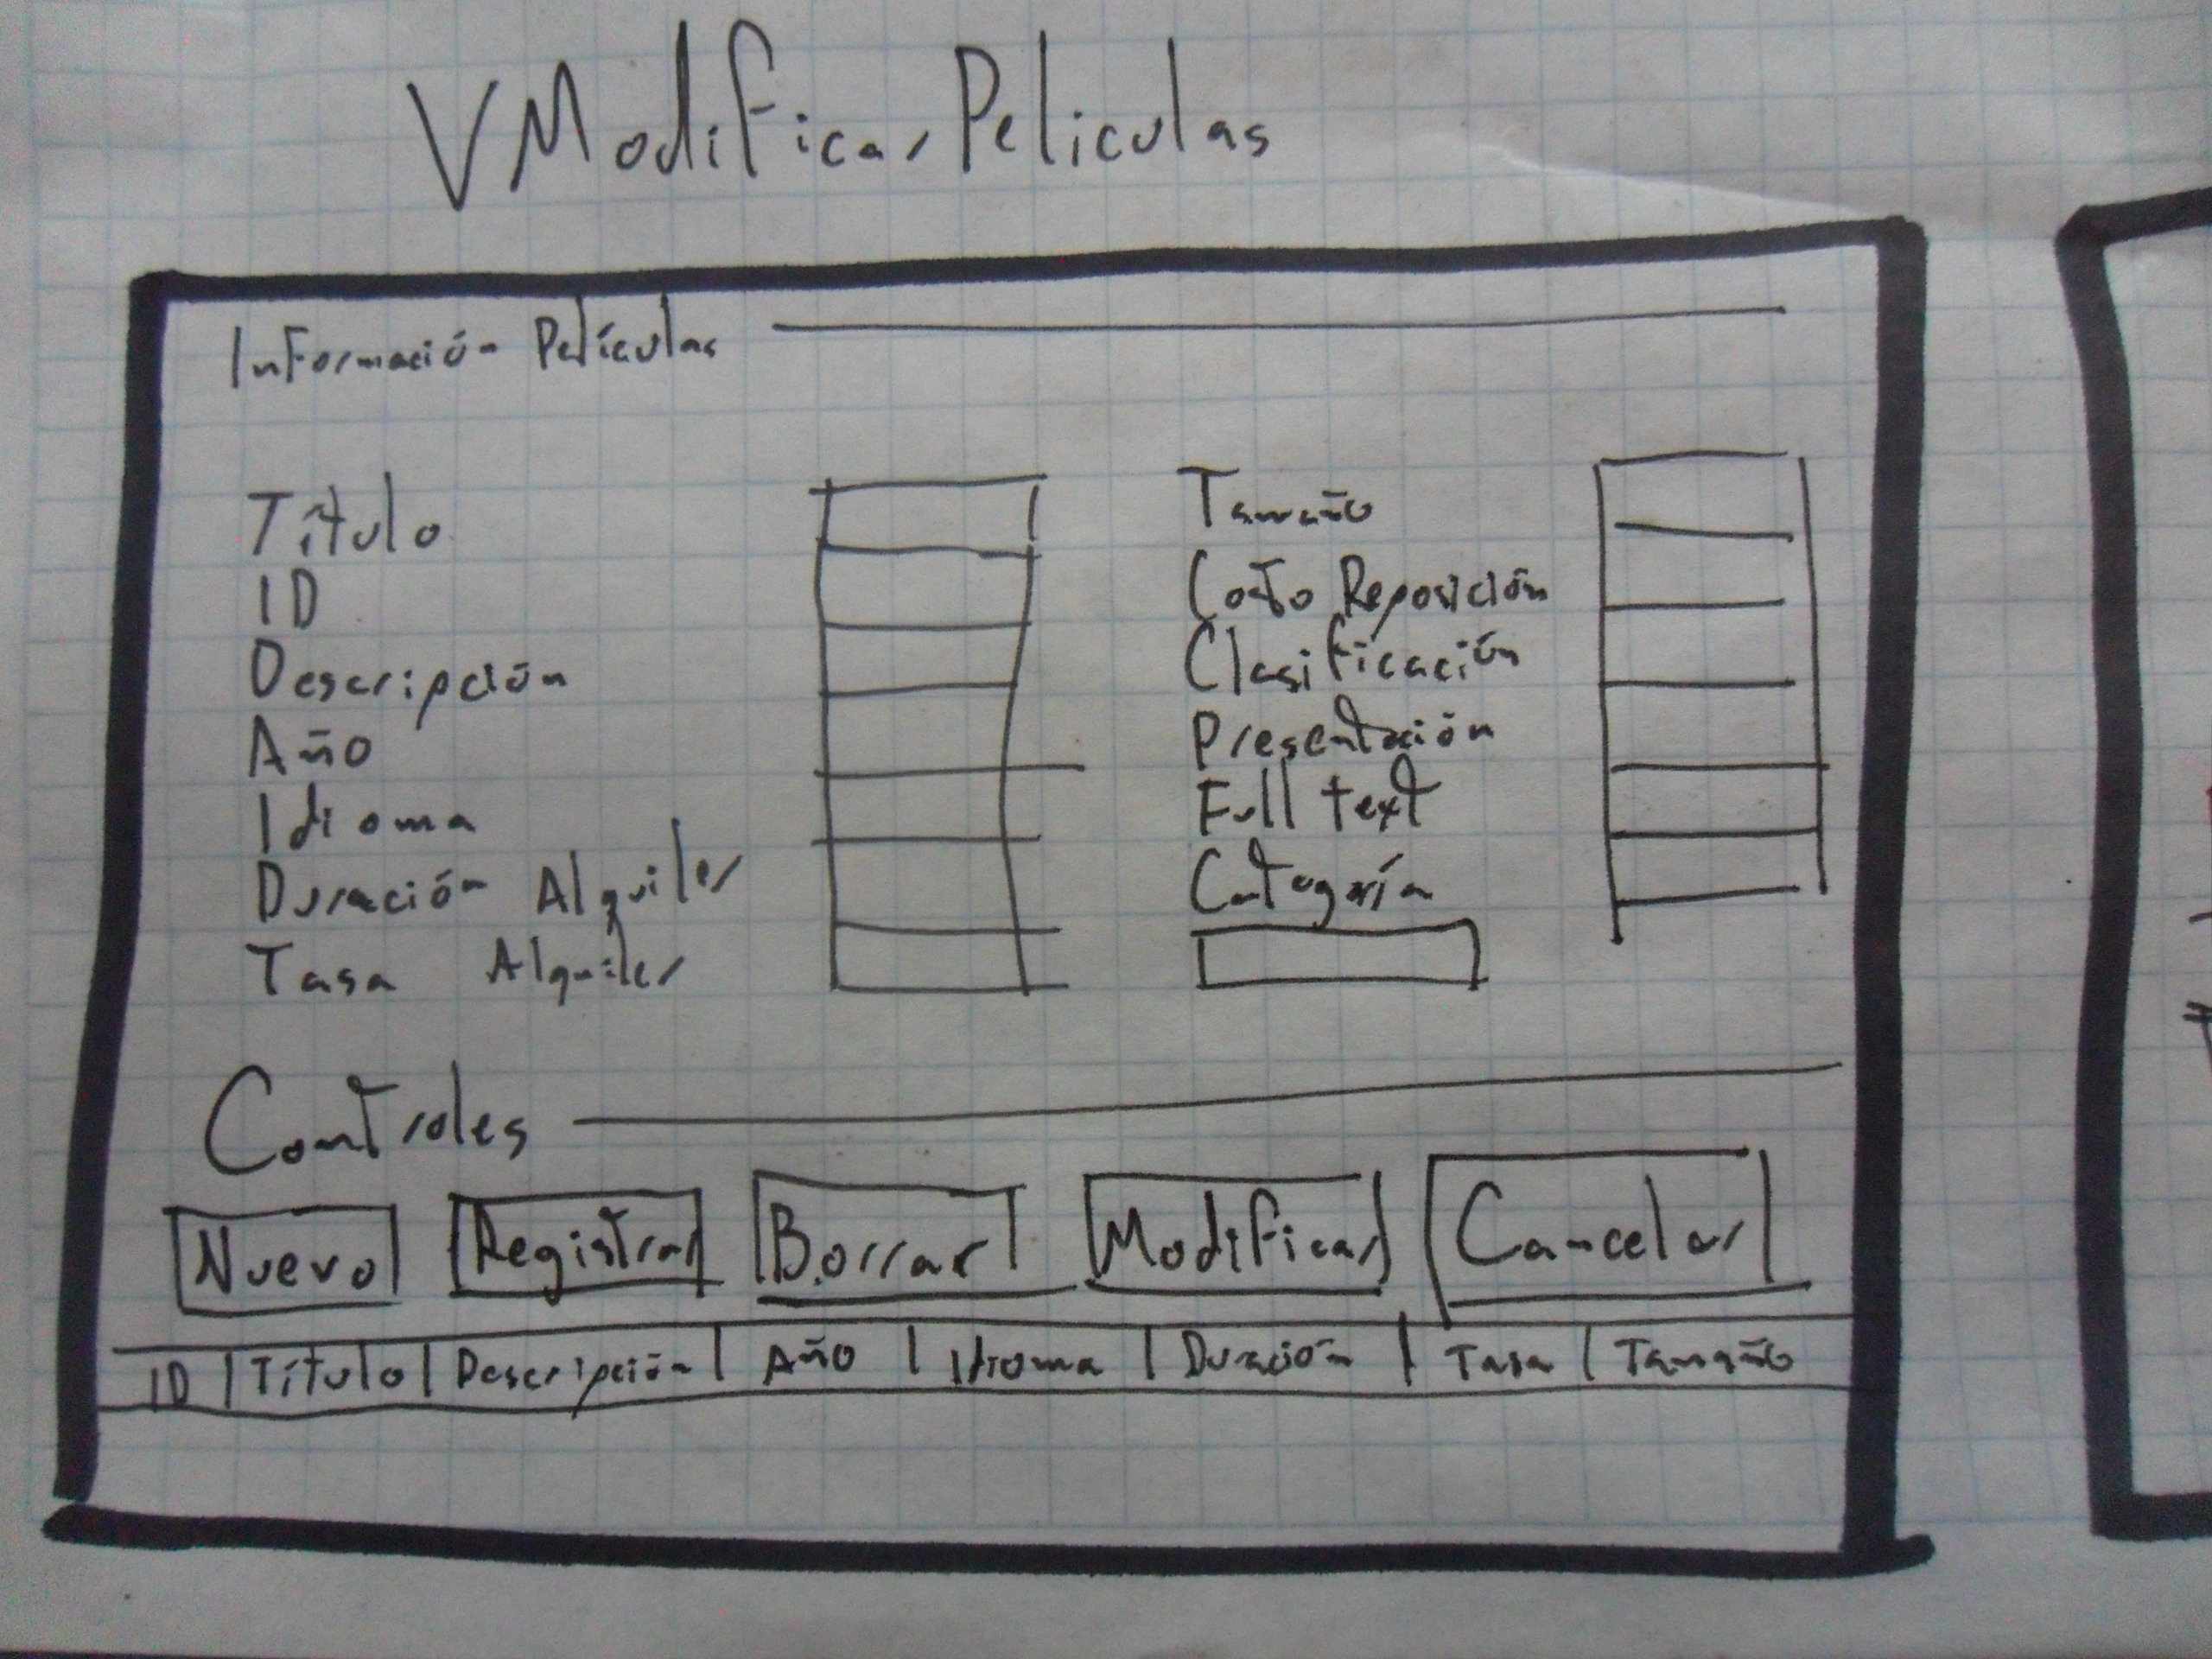 VModificarPeliculas
Información Películas
Título
ID
Descripción
Año
Idioma
Duración Alquiler
Tasa Alquiler
Tamaño
Costo Reposición
Clasificación
Presentación
Full text
Categoría
Controles
Nuevo Registrar Borrar Modificar Cancelar
ID | Título | Descripción | Año | Idioma | Duración | Tasa | Tamaño